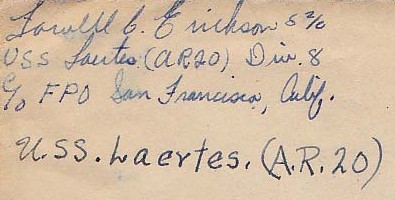 Lowell C. Erickson S 2/c
USS Laertes (AR20) Div. 8
C/o FPO San Francisco, Calif.
U.S.S. Laertes. (A.R. 20)